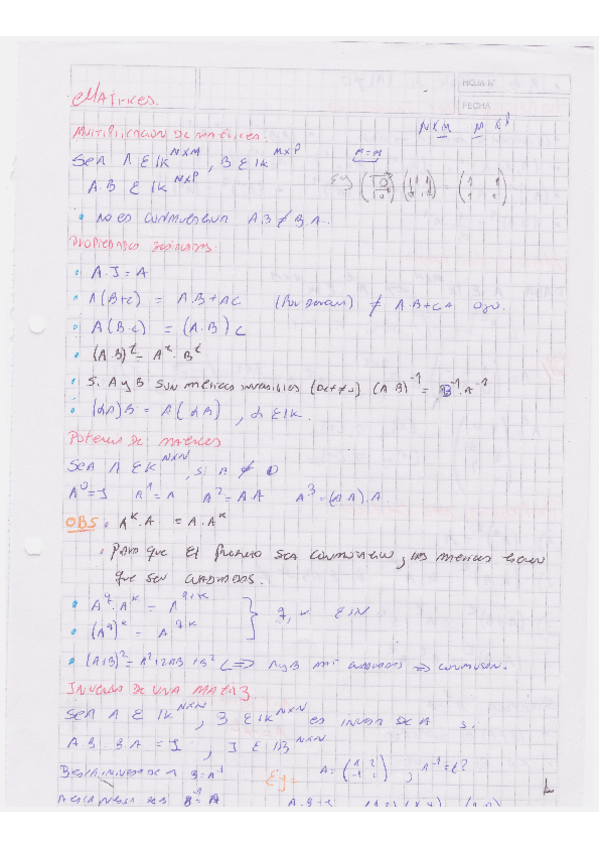 HOJA Nº
FECHA
Matrices.
Multiplicacion de matrices.
N×M M×P
Sea A ∈ IK^N×M, B ∈ IK^M×P
M=M
A.B ∈ IK^N×P
Ej
• no es conmutativa A.B ≠ B.A.
Propiedades
• A.I = A
• A(B+C) = A.B+AC (Por derecha) ≠ A.B+CA ojo.
• A(B.C) = (A.B)C
• (A.B)^t = A^t.B^t
• Si A y B son matrices invertibles (Det≠0) (A.B)^-1 = B^-1.A^-1
• (αA)B = A(αB), α ∈ IK.
Potencia de matrices
Sea A ∈ IK^N×N, si A ≠ 0
A^0=I A^1=A A^2=AA A^3=(AA).A
OBS. A^K.A = A.A^K
• Para que el producto sea conmutativo, las matrices tienen
que ser cuadradas.
• A^q.A^K = A^q+K
q, K ∈ IN
• (A^q)^K = A^q.K
• (A+B)^2 = A^2+2AB+B^2 <=> A y B son cuadradas => conmutan.
Inversa de una matriz.
Sea A ∈ IK^N×N, B ∈ IK^N×N es inversa de A si
A.B = B.A = I, I ∈ IK^N×N
B es la inversa de A B=A^-1
Ej: A= , A^-1=¿?
B^-1 = A
1